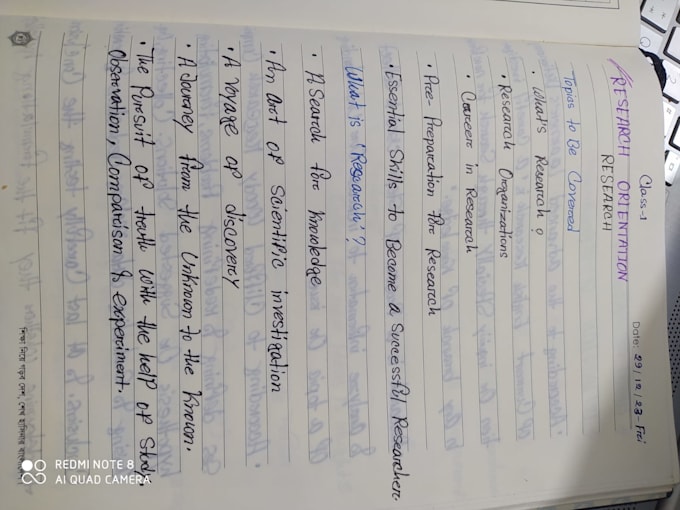 Class-1
Date: 29/12/23-Fri
RESEARCH ORIENTATION
RESEARCH
Topics to Be Covered
• What's Research?
• Research Organizations
• Career in Research
• Pre-Preparation for Research
• Essential Skills to Become a Successful Researcher.
What is 'Research'?
• A Search for Knowledge
• An art of Scientific investigation
• A Voyage of discovery
• A Journey from the Unknown to the Known.
• The Pursuit of truth with the help of Study,
Observation, Comparison & experiment.
REDMI NOTE 8
AI QUAD CAMERA